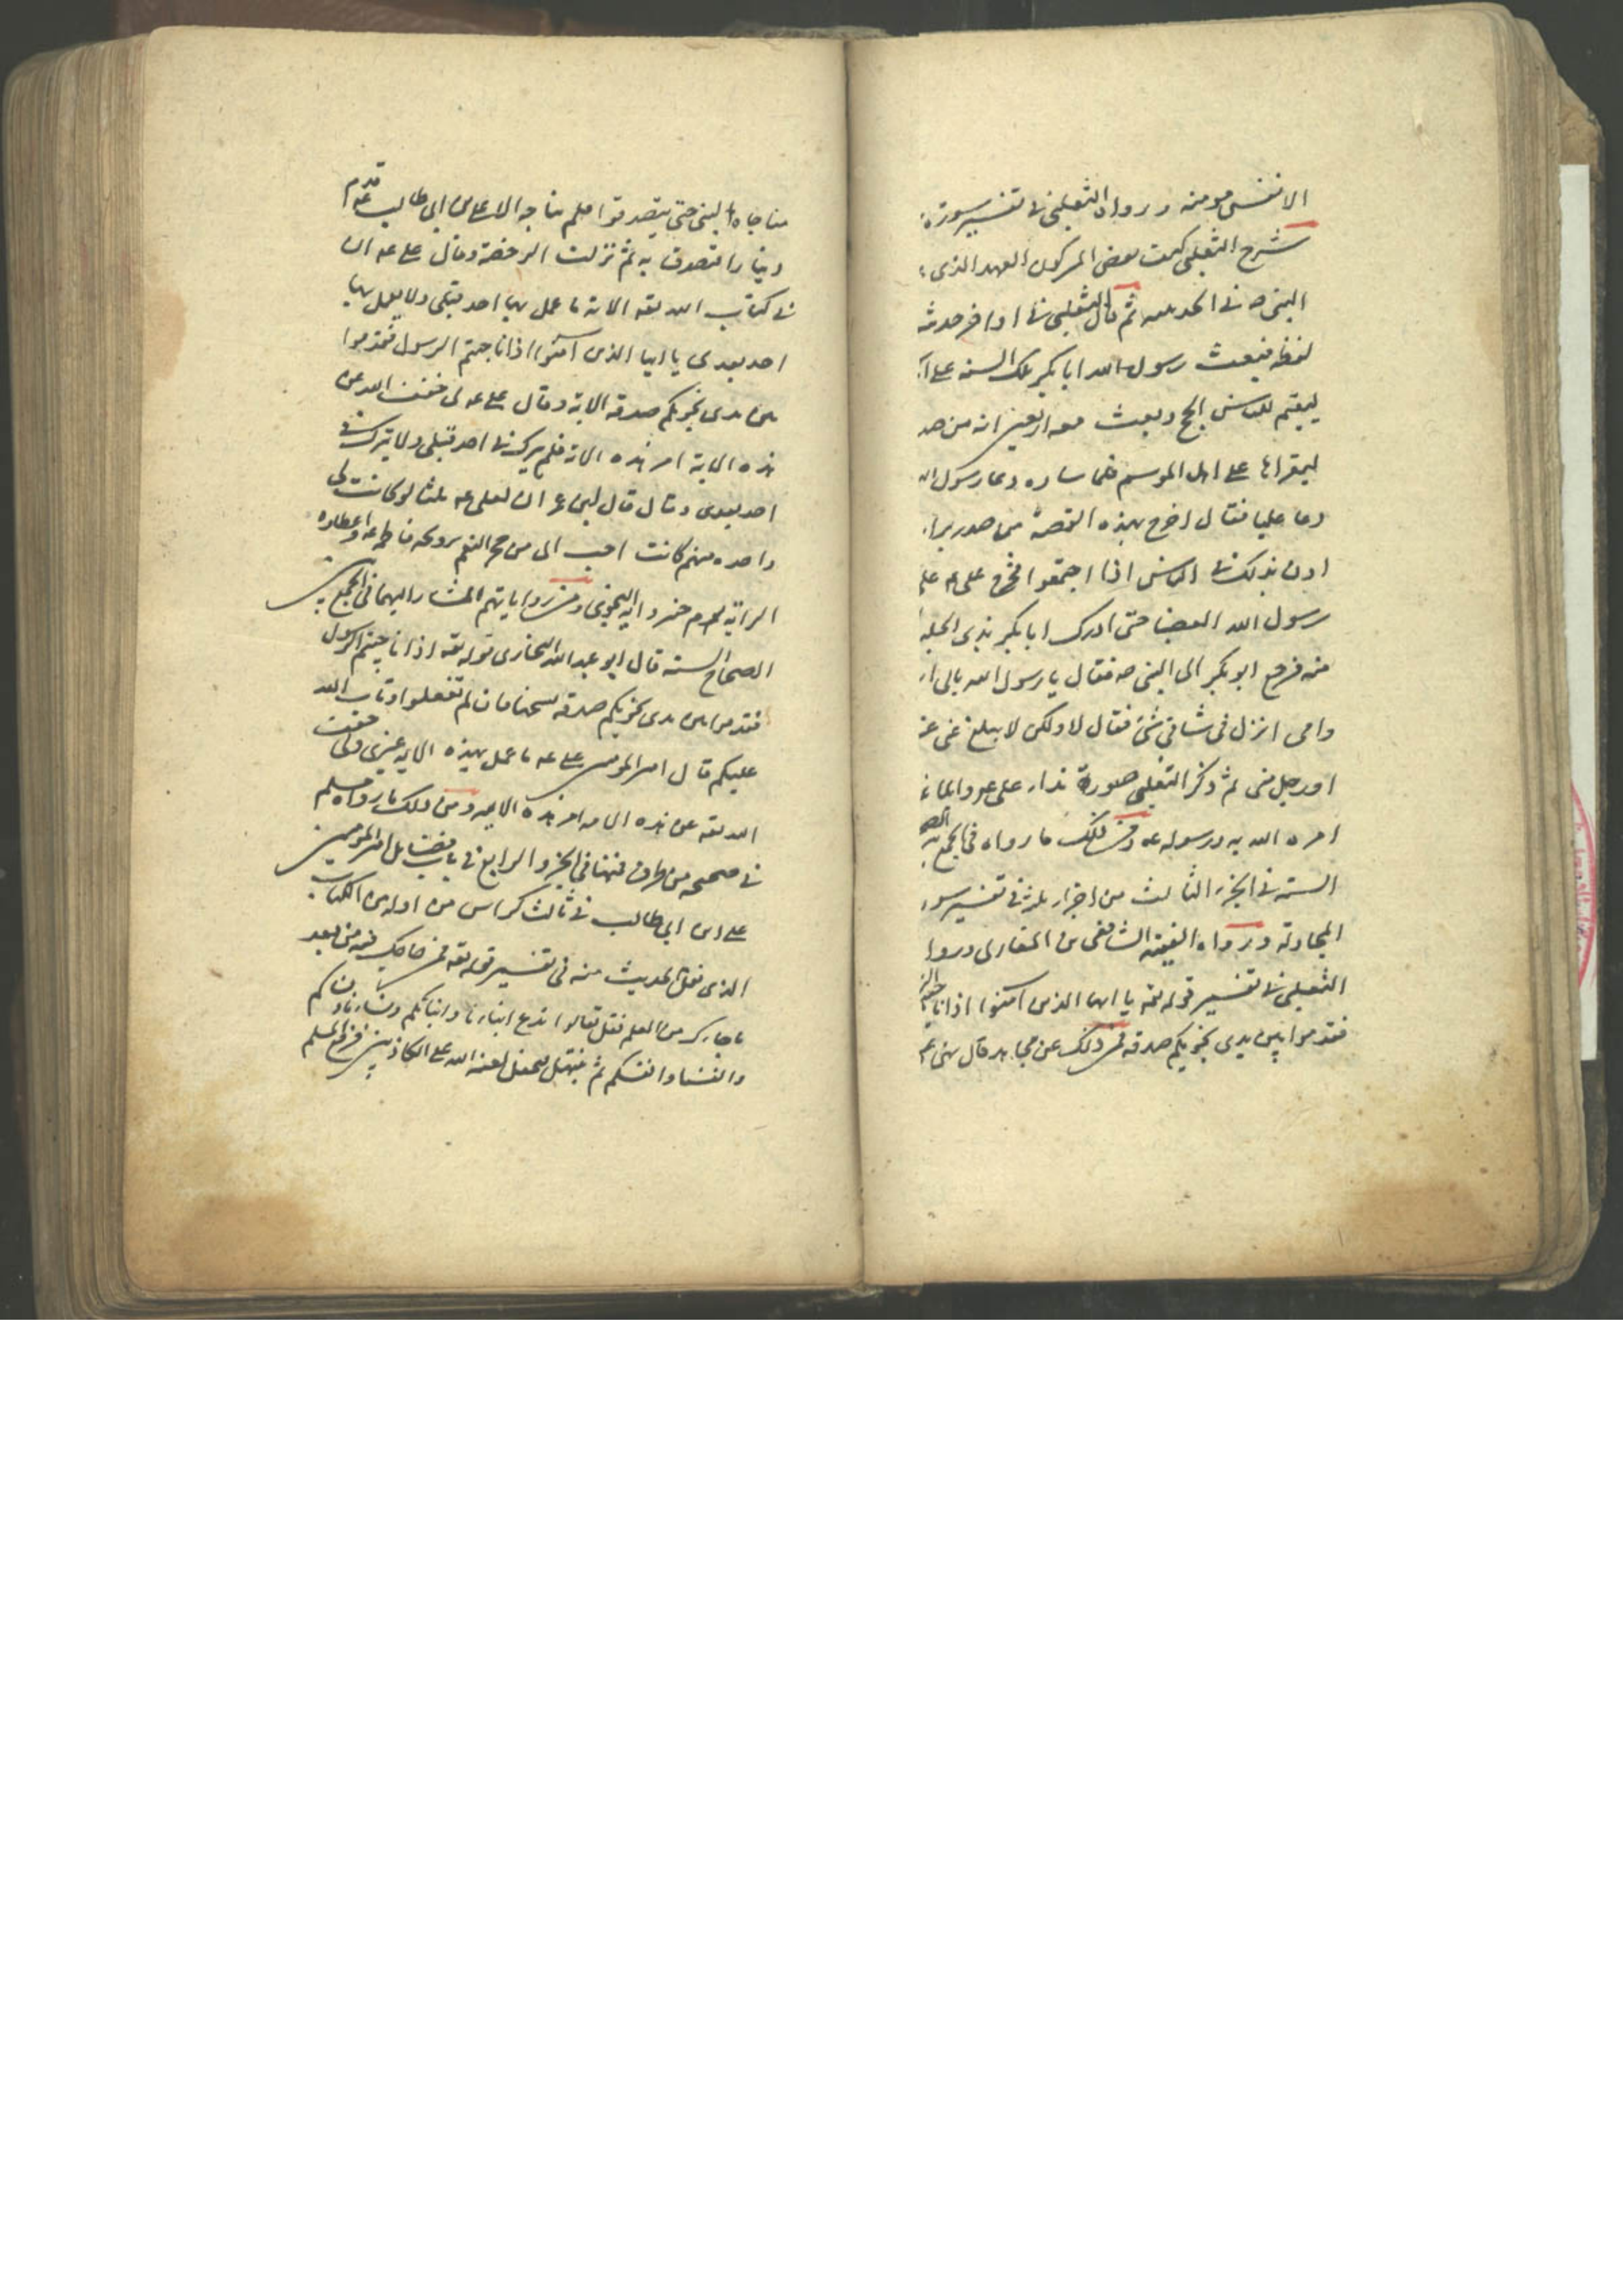 الا نفس مومنه ورواه الثعلبی فی تفسیر سورة
شرح الثعلبی کیف نقض المشرکون العهد الذی
النبی ص فی الحدیبیه ثم قال الثعلبی فی اواخر حدیثه
لفظه فبعث رسول الله ابا بکر تلک السنه علی
لیقیم للناس الحج وبعث معه اربعین ایه من صد
لیقراها علی اهل الموسم فلما سار دعا رسول ال
دعا علیا فقال اخرج بهذه القصة من صدر برا
اذن بذلک فی الناس اذا اجتمعوا فخرج علی عه علی
رسول الله العضبا حتی ادرک ابا بکر بذی الحلیفه
منه فرجع ابو بکر الی النبی ص فقال یا رسول الله بابی ا
وامی انزل فی شانی شی فقال لا ولکن لا یبلغ عنی غ
او رجل منی ثم ذکر الثعلبی صورة نداء علی عه و
امره الله به ورسوله عه ومن ذلک ما رواه فی الجمع بین الصح
السته فی الجزء الثالث من اجزاء ثلثه فی تفسیر سور
المجادله ورواه الفقیه الشافعی بن المغازلی وروا
الثعلبی فی تفسیر قوله تعه یا ایها الذین امنوا اذا ناجیتم الر
فقدموا بین یدی نجویکم صدقه فمن ذلک عن مجاهد قال نهی ع
مناجاه النبی حتی یتصدقوا فلم یناجه الا علی بن ابی طالب عه قدم
دینارا فتصدق به ثم نزلت الرخصة وقال علی عه ان
فی کتاب الله تعه الایة ما عمل بها احد قبلی ولا یعمل بها
احد بعدی یا ایها الذین امنوا اذا ناجیتم الرسول فقدموا
بین یدی نجویکم صدقه الایة وقال علی عه لی خفف الله عن
هذه الایة امر هذه الایة فلم ینزل فی احد قبلی ولا ینزل فی
احد بعدی وقال قال ابن عمر ان لعلی عه ثلثا لو کانت لی
واحده منهن کانت احب الی من حمر النعم تزویجه فاطمه عه واعطاوه
الرایه یوم خیبر وایه النجوی ومن روایاتهم المشار الیها فی الجمع بین
الصحاح السته قال ابو عبد الله البخاری قوله تعه اذا ناجیتم الرسول
فقدموا بین یدی نجویکم صدقه نسختها فان لم تفعلوا وتاب الله
علیکم قال امیر المومنین علی عه ما عمل بهذه الایه غیری وبی خفف
الله تعه عن هذه الامه امر هذه الایه ومن ذلک ما رواه مسلم
فی صحیحه من طرق فمنها فی الجزو الرابع فی باب فضایل امیر المومنین
علی بن ابی طالب فی ثالث کراس من اوله من الکتاب
الذی نقل الحدیث منه فی تفسیر قوله تعه فمن حاجک فیه من بعد
ما جاءک من العلم فقل تعالوا ندع ابناءنا وابناءکم ونساءنا ونساءکم
وانفسنا وانفسکم ثم نبتهل فنجعل لعنة الله علی الکاذبین فرفع مسلم